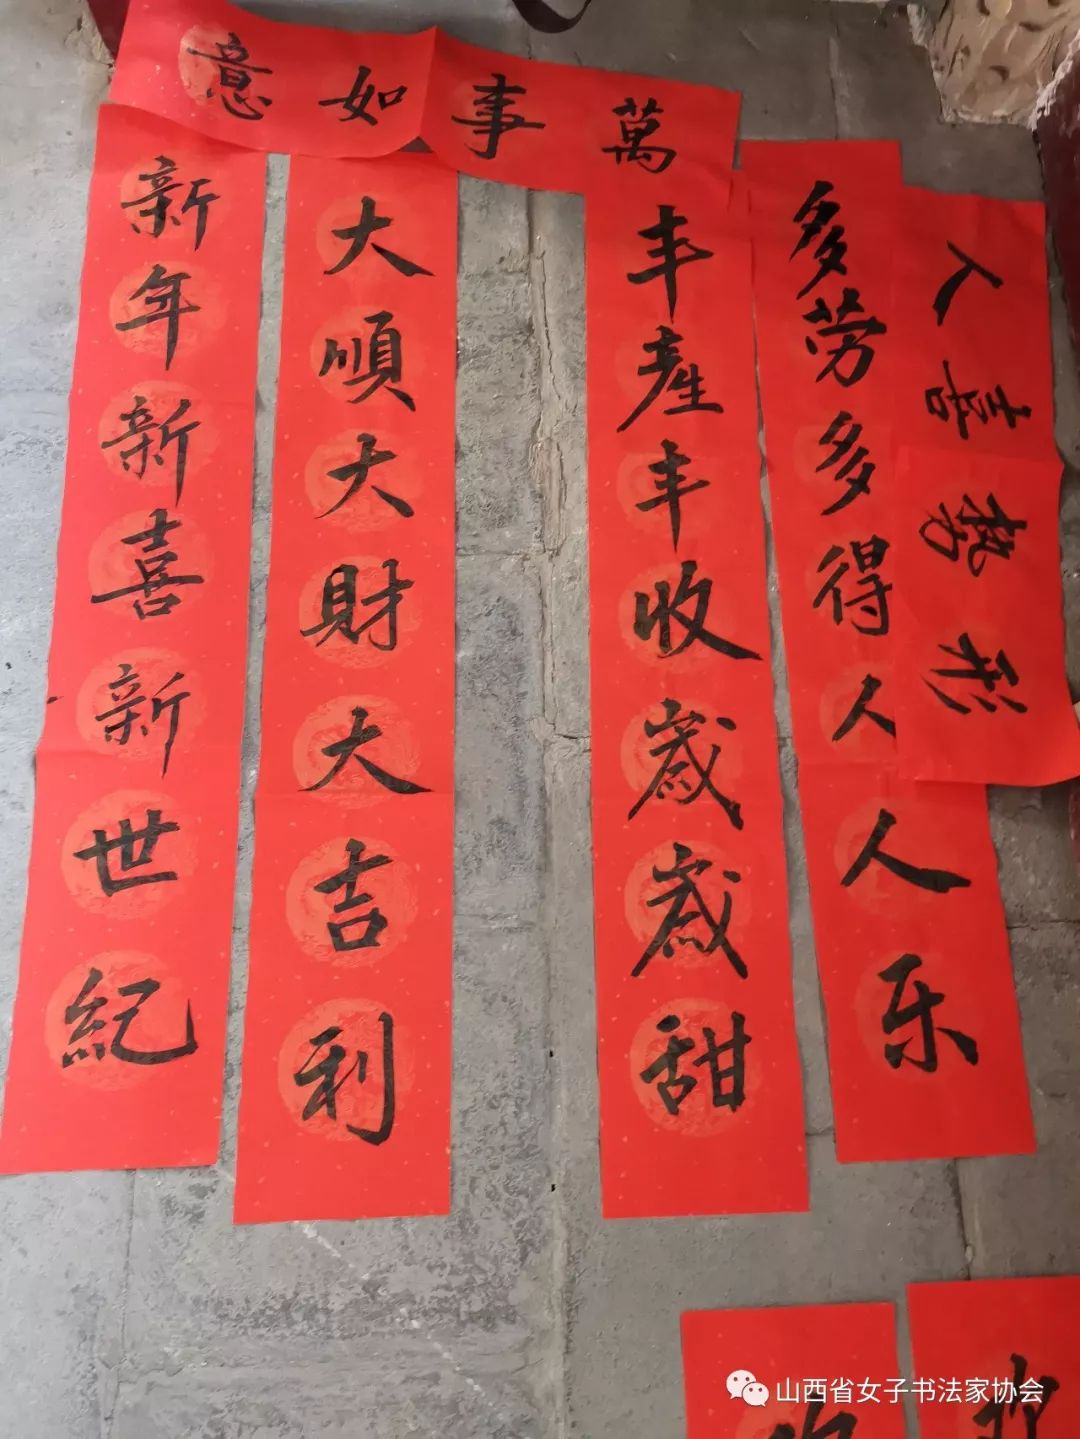 意如事萬
新年新喜新世紀
大順大財大吉利
丰產丰收歲歲甜
多劳多得人人乐
人喜勢形
山西省女子书法家协会